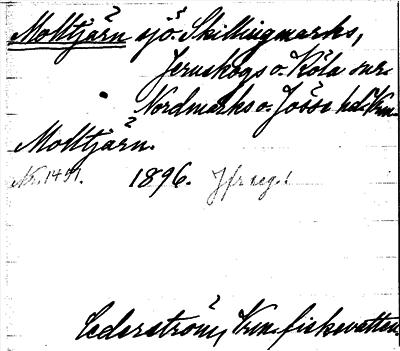 Molltjärn sjö. Skillingmarks,
Jernskogs o. Köla snr.
Nordmarks o. Jösse hd. Vrm.
Molltjärn.
Nr. 1491. 1896. Jfr reg.!
Cederström, Vrm. fiskevatten.